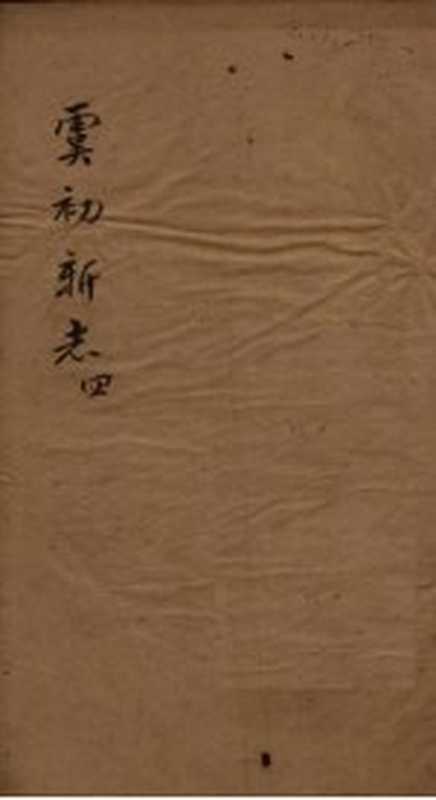 虞初新志四